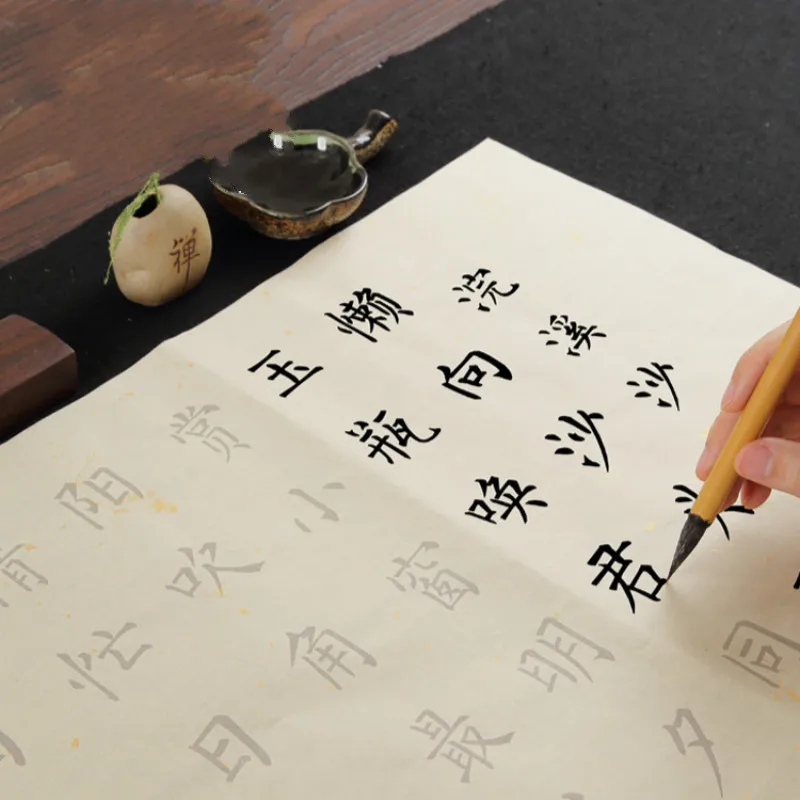 浣溪沙
懒向沙
玉瓶唤君同
赏小窗明夕
阳吹角最
情忙日
禅